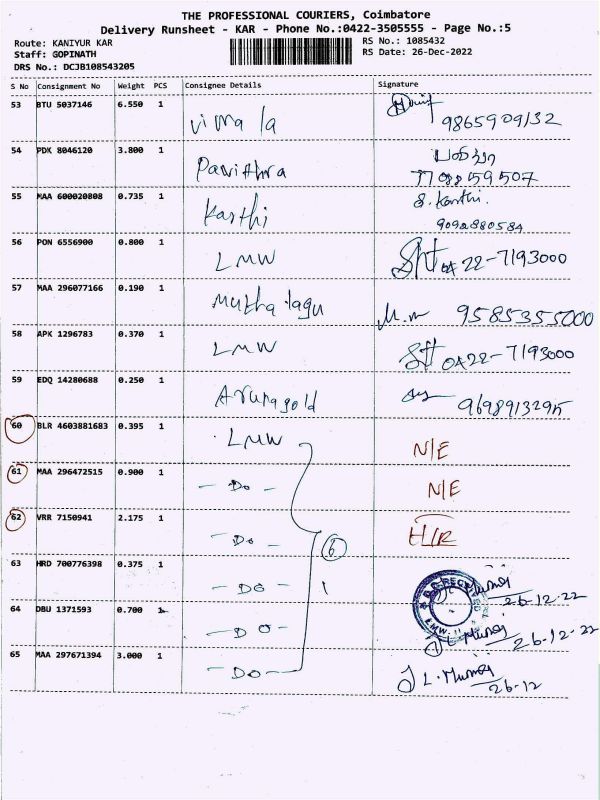 THE PROFESSIONAL COURIERS, Coimbatore
Delivery Runsheet - KAR - Phone No.:0422-3505555 - Page No.:5
Route: KANIYUR KAR
RS No.: 1085432
Staff: GOPINATH
RS Date: 26-Dec-2022
DRS No.: DCJB108543205
S No Consignment No Weight PCS Consignee Details Signature
53 BTU 5037146 6.550 1 Vimala 9865909132
54 PDK 8046120 3.800 1 Pavithra
7708859507
55 MAA 600020808 0.735 1 Karthi S. Karthi.
9092880584
56 PON 6556900 0.800 1 LMW 0422-7193000
57 MAA 296077166 0.190 1 Muthalagu M.m 9585355000
58 APK 1296783 0.370 1 LMW 0422-7193000
59 EDQ 14280688 0.250 1 Arunagold
60 BLR 4603881683 0.395 1 LMW N/E
61 MAA 296472515 0.900 1 - Do - N/E
62 VRR 7150941 2.175 1 - Do -
6
63 HRD 700776398 0.375 1 - DO - 26-12-22
64 DBU 1371593 0.700 1 - DO - 26-12-22
65 MAA 297671394 3.000 1 - Do - 26-12